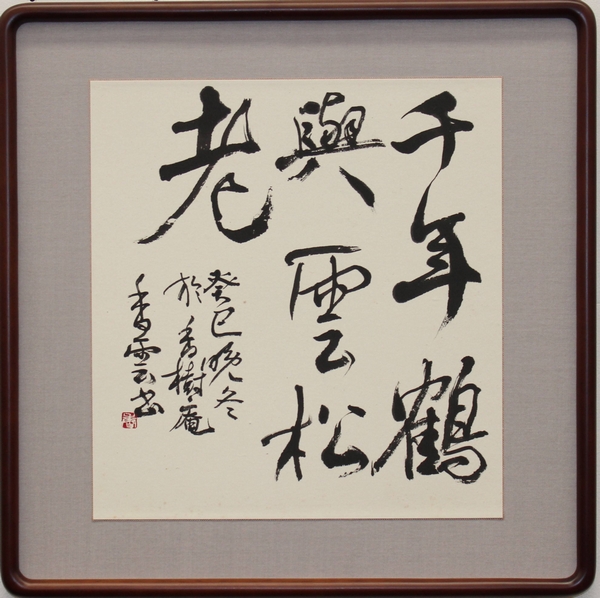 千年鶴
與雲松
老
癸巳晩冬
於香樹庵
香雲書